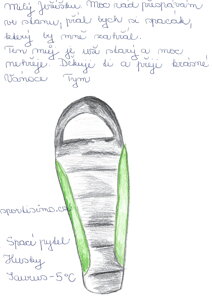 Milý Ježíšku. Moc rád přespávám
ve stanu, přál bych si spacák,
který by mně zahřál.
Ten můj je už starý a moc
nehřeje. Děkuji ti a přeji krásné
Vánoce Tým
sportisimo.cz
Spací pytel
Husky
Taurus -5°C